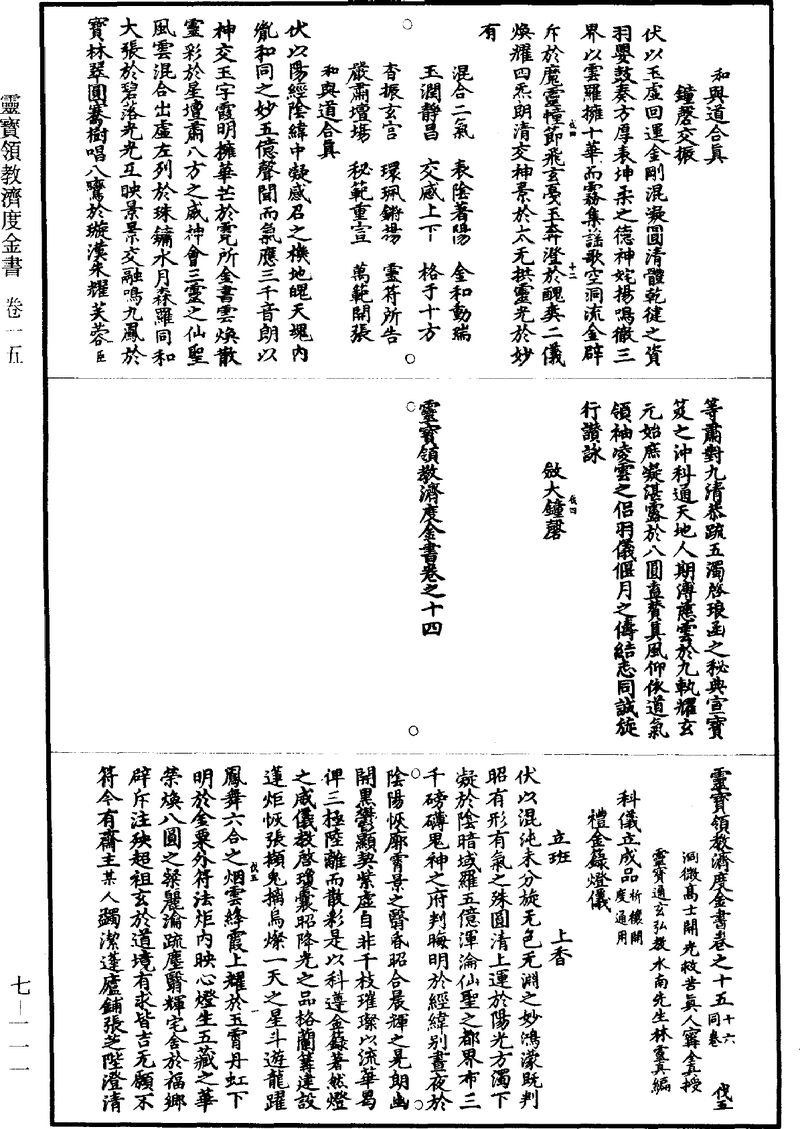 和與道合真
鐘磬交振
伏以玉虛回運金剛混凝圓清體乾健之資
羽嬰鼓奏方厚表坤柔之德神姹揚鳴徹三
界以雲羅擁十華而霧集謡歌空洞流金辟
斥於魔靈幢節飛玄戞玉奔澄於醜爽二儀
煥耀四炁朗清交神景於太无拱靈光於妙
有
混合二氣 表陰著陽 金和動瑞
玉潤靜昌 交感上下 格于十方
杳振玄宫 環珮鏘揚 靈符所告
嚴肅壇場 秘範重宣 萬範開張
和與道合真
伏以陽經陰緯中凝感召之機地魄天魂内
胤和同之妙五億聲聞而氣應三千音朗以
神交玉字霞明擁華芒於霓所金書雲煥散
靈彩於星壇肅八方之威神會三靈之仙聖
風雲混合出虛左列於珠鏞水月森羅同和
大張於碧落光光互映景景交融鳴九鳳於
寳林翠圓騫樹唱八鸞於璇漢朱耀芙蓉臣
等肅對九清恭疏五濁啓琅函之秘典宣寳
笈之沖科通天地人期溥慈雲於九執耀玄
元始庶凝湛露於八圓直賛真風仰依道氣
領袖凌雲之侣羽儀偃月之儔結志同誠旋
行讚詠
敛大鐘磬
靈寶領教濟度金書卷之十四
靈寶領教濟度金書卷之十五 十六同卷 伐五
洞微高士開光救苦真人寗全真授
靈寶通玄弘教水南先生林靈真編
科儀立成品 祈禳開度通用
禮金籙燈儀
立班 上香
伏以混沌未分旋无色无淵之妙鴻濛旣判
昭有形有氣之殊圓清上運於陽光方濁下
凝於陰暗域羅五億渾淪仙聖之都界布三
千磅礴鬼神之府判晦明於經緯别晝夜於
陰陽恢廓霄景之翳吝昭合晨輝之晃朗幽
開黑鬱顯契紫虛自非千枝璀璨以流華曷
俾三極陸離而散彩是以科遵金籙著然燈
之威儀教啓瓊囊昭降光之品格蘭篝建設
蓮炬恢張擷兎摘烏燦一天之星斗遊龍躍
鳳舞六合之烟雲絳霞上耀於玉霄丹虹下
明於金粟外符法炬内映心燈生五藏之華
榮煥八圓之粲麗瀹疏塵翳輝宅舍於福鄉
辟斥注殃超祖玄於道境有求皆吉无願不
符今有齋主某人蠲潔蓬廬鋪張芝陛澄清
靈寶領教濟度金書 卷一五
七－一一一